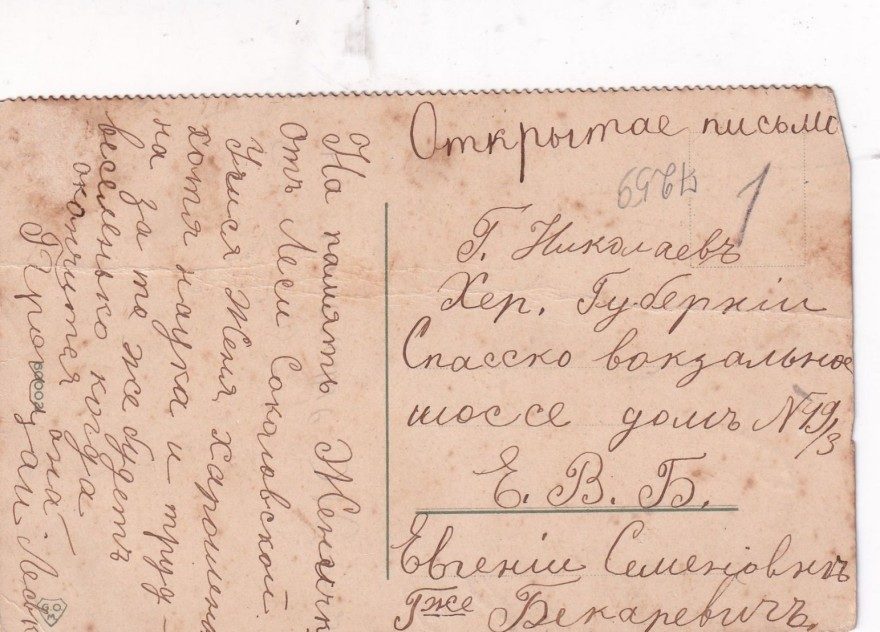 Открытае письмо
1
Г. Николаевъ
Хер. Губерніи
Спасско вокзальное
шоссе домъ №
Е. В. Б.
Евгеніи Семеновнѣ
Гже Бекаревичъ.
На память Женичк
Отъ Леси Сокаловской.
Учися Женя харошен
хотя наука и труд-
на за то же будетъ
веселенько когда
окончится она
Леськ